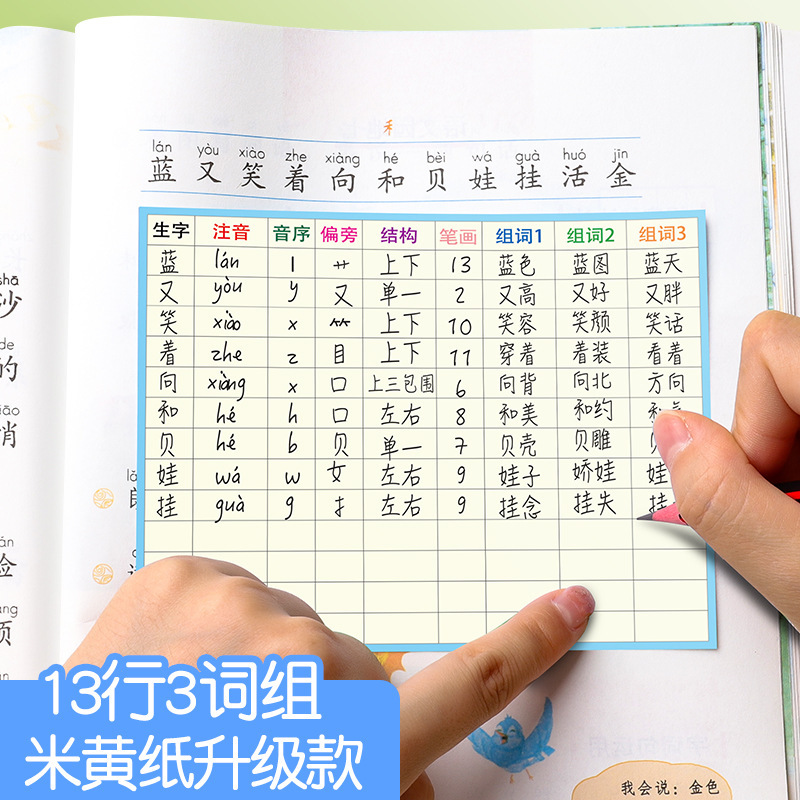 禾
lán yòu xiào zhe xiàng hé bèi wá guà huó jīn
蓝 又 笑 着 向 和 贝 娃 挂 活 金
生字 注音 音序 偏旁 结构 笔画 组词1 组词2 组词3
蓝 lán l 艹 上下 13 蓝色 蓝图 蓝天
又 yòu y 又 单一 2 又高 又好 又胖
笑 xiào x ⺮ 上下 10 笑容 笑颜 笑话
着 zhe z 目 上下 11 穿着 着装 看着
向 xiàng x 口 上三包围 6 向背 向北 方向
和 hé h 口 左右 8 和美 和约
贝 hé b 贝 单一 7 贝壳 贝雕
娃 wá w 女 左右 9 娃子 娇娃 娃
挂 guà g 扌 左右 9 挂念 挂失 挂
shā
沙
de
的
悄
13行3词组
米黄纸升级款
我会说：金色